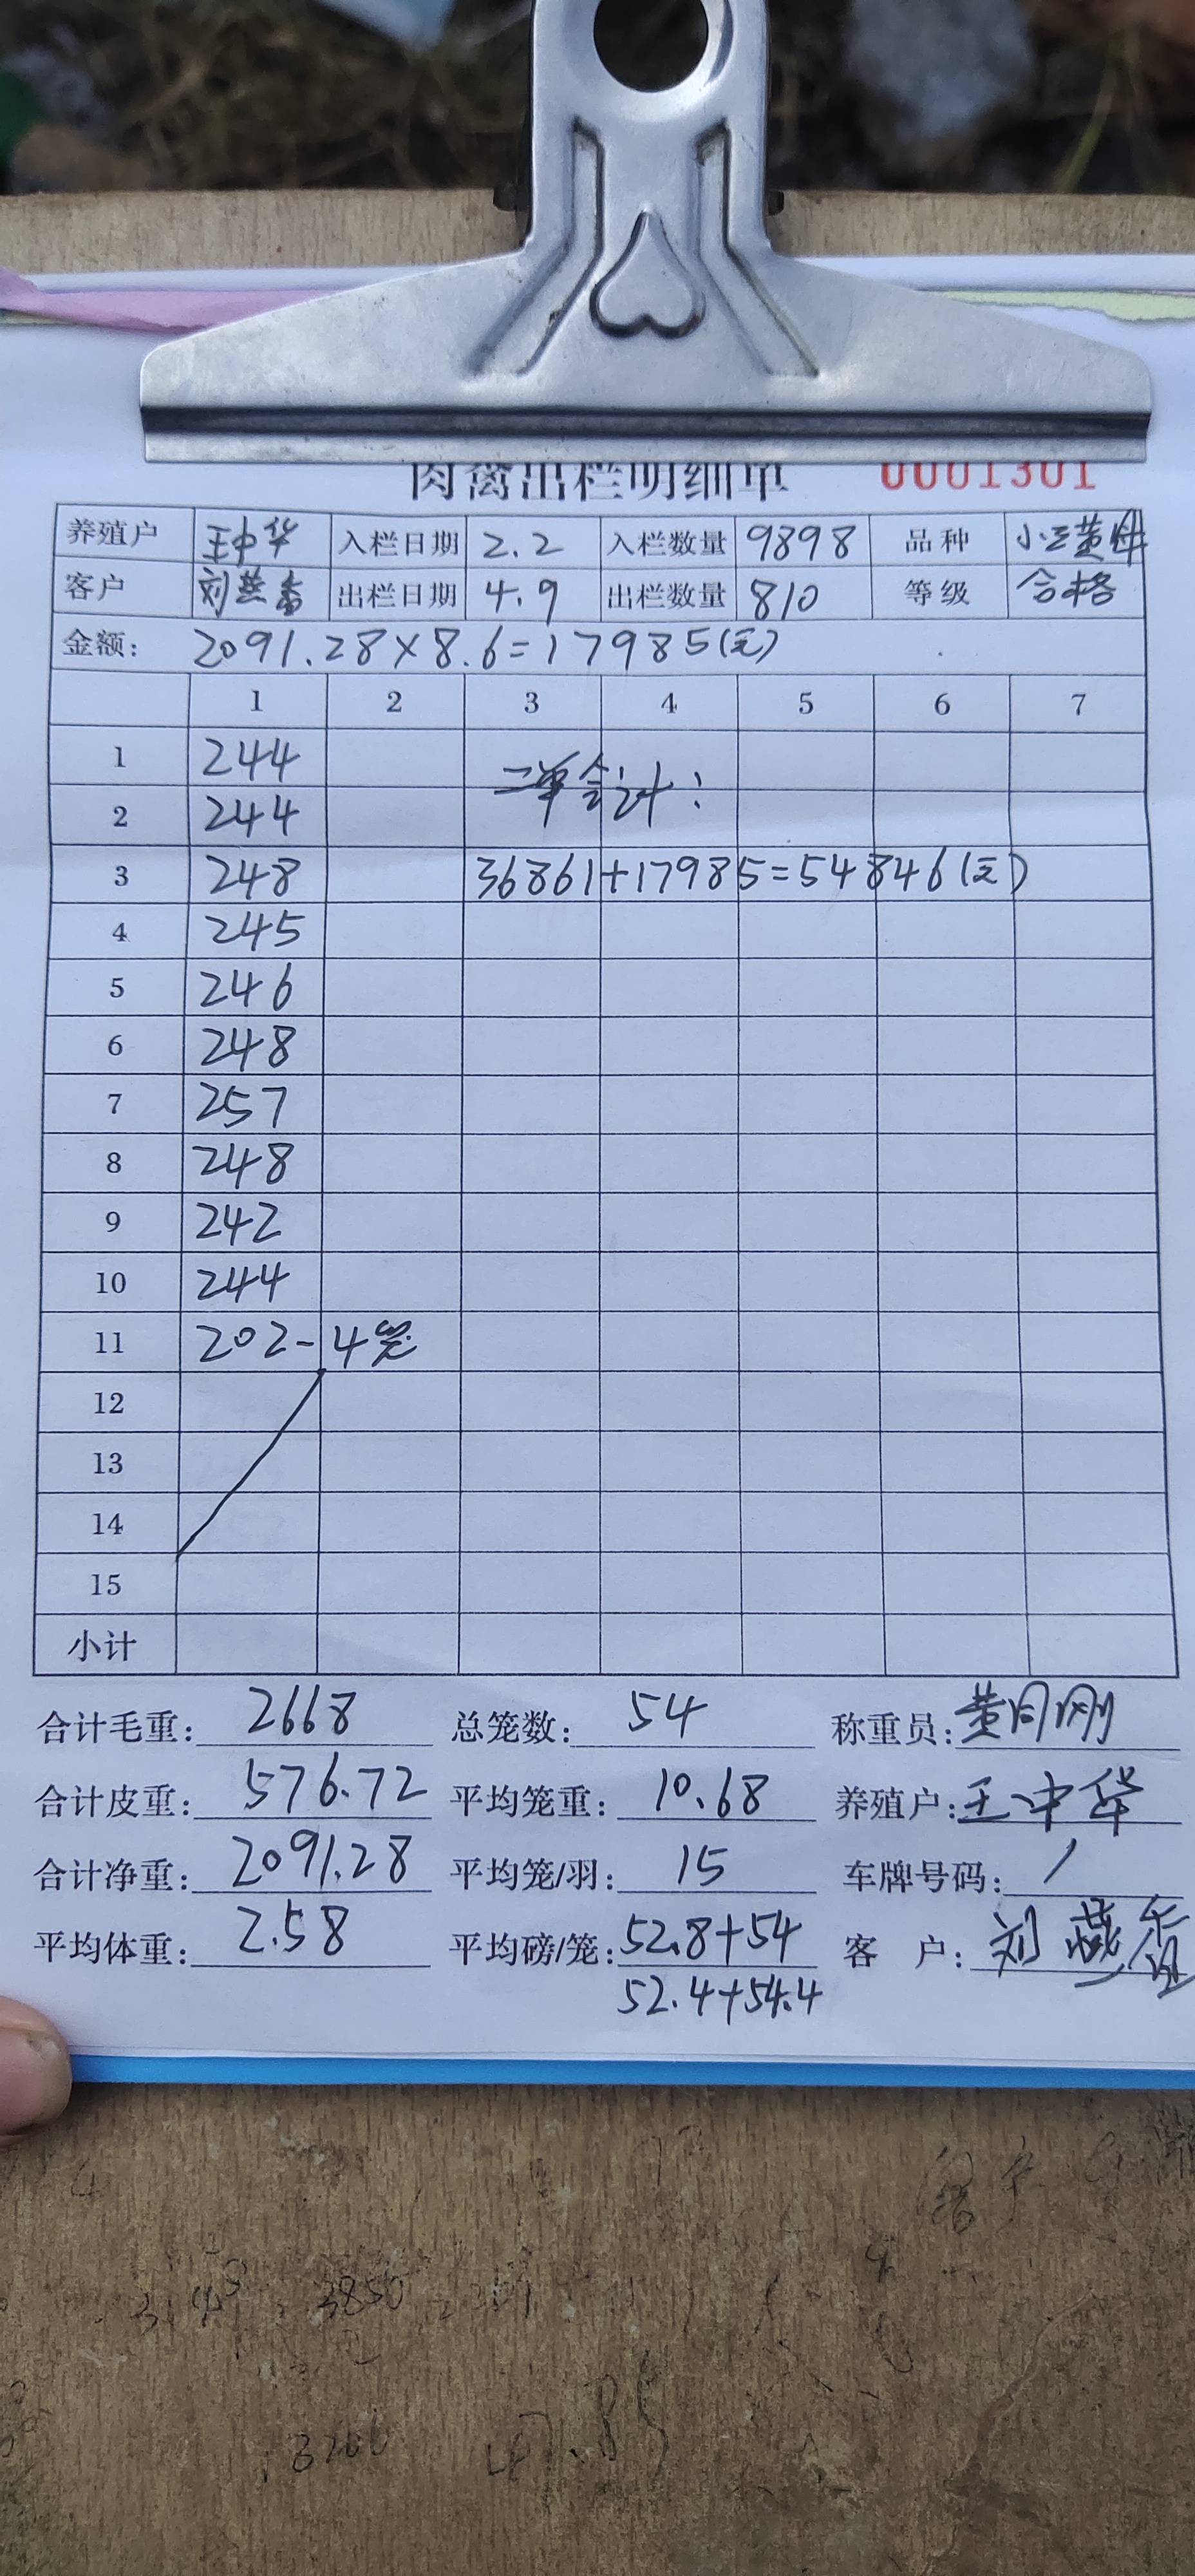 肉禽出栏明细单 0001301
养殖户 王中华 入栏日期 2.2 入栏数量 9898 品种 小三黄
客户 刘燕香 出栏日期 4.9 出栏数量 810 等级 合格
金额: 2091.28×8.6=17985(元)
1 2 3 4 5 6 7
1 244
二单合计:
2 244
3 248 36861+17985=54846(元)
4 245
5 246
6 248
7 257
8 248
9 242
10 244
11 202-4笼
12
13
14
15
小计
合计毛重: 2668 总笼数: 54 称重员: 黄同刚
合计皮重: 576.72 平均笼重: 10.68 养殖户: 王中华
合计净重: 2091.28 平均笼/羽: 15 车牌号码: /
平均体重: 2.58 平均磅/笼: 52.8+54 客 户: 刘燕香
52.4+54.4
3850
3200